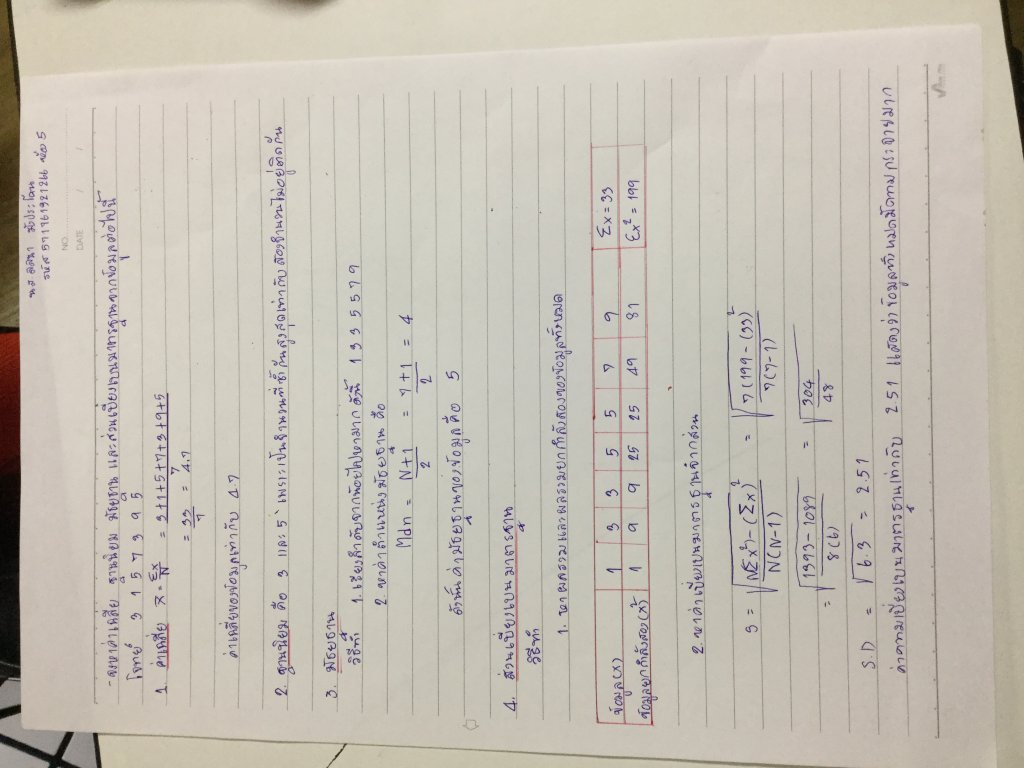 น.ส อลนา มังประโคน
รหัส 571761921266 ห้อง 5
NO.
DATE / /
- จงหาค่าเฉลี่ย ฐานนิยม มัธยฐาน และส่วนเบี่ยงเบนมาตรฐานจากข้อมูลต่อไปนี้
โจทย์ 3 1 5 7 3 9 5
1. ค่าเฉลี่ย x̄ = Σx/N = 3+1+5+7+3+9+5/7
= 33/7 = 4.7
ค่าเฉลี่ยของข้อมูลเท่ากับ 4.7
2. ฐานนิยม คือ 3 และ 5 เพราะเป็นจำนวนที่ซ้ำกันสูงสุดเท่ากับ สองจำนวนไม่อยู่ติดกัน
3. มัธยฐาน
วิธีทำ 1. เรียงลำดับจากน้อยไปหามาก ดังนี้ 1 3 3 5 5 7 9
2. หาค่าตำแหน่งมัธยฐาน คือ
Mdn = N+1/2 = 7+1/2 = 4
ดังนั้นค่ามัธยฐานของข้อมูลคือ 5
4. ส่วนเบี่ยงเบนมาตรฐาน
วิธีทำ
1. หาผลรวมและผลรวมยกกำลังสองของข้อมูลทั้งหมด
ข้อมูล(x) 1 3 3 5 5 7 9 Σx = 33
ข้อมูลยกกำลังสอง(x²) 1 9 9 25 25 49 81 Σx² = 199
2. หาค่าเบี่ยงเบนมาตรฐานจากส่วน
S = √NΣx²-(Σx)²/N(N-1) = √7(199-(33)²/7(7-1)
= √1393-1089/8(6) = √304/48
S.D = √6.3 = 2.51
ค่าความเบี่ยงเบนมาตรฐานเท่ากับ 2.51 แสดงว่าข้อมูลทั้งหมดมีความกระจายมาก